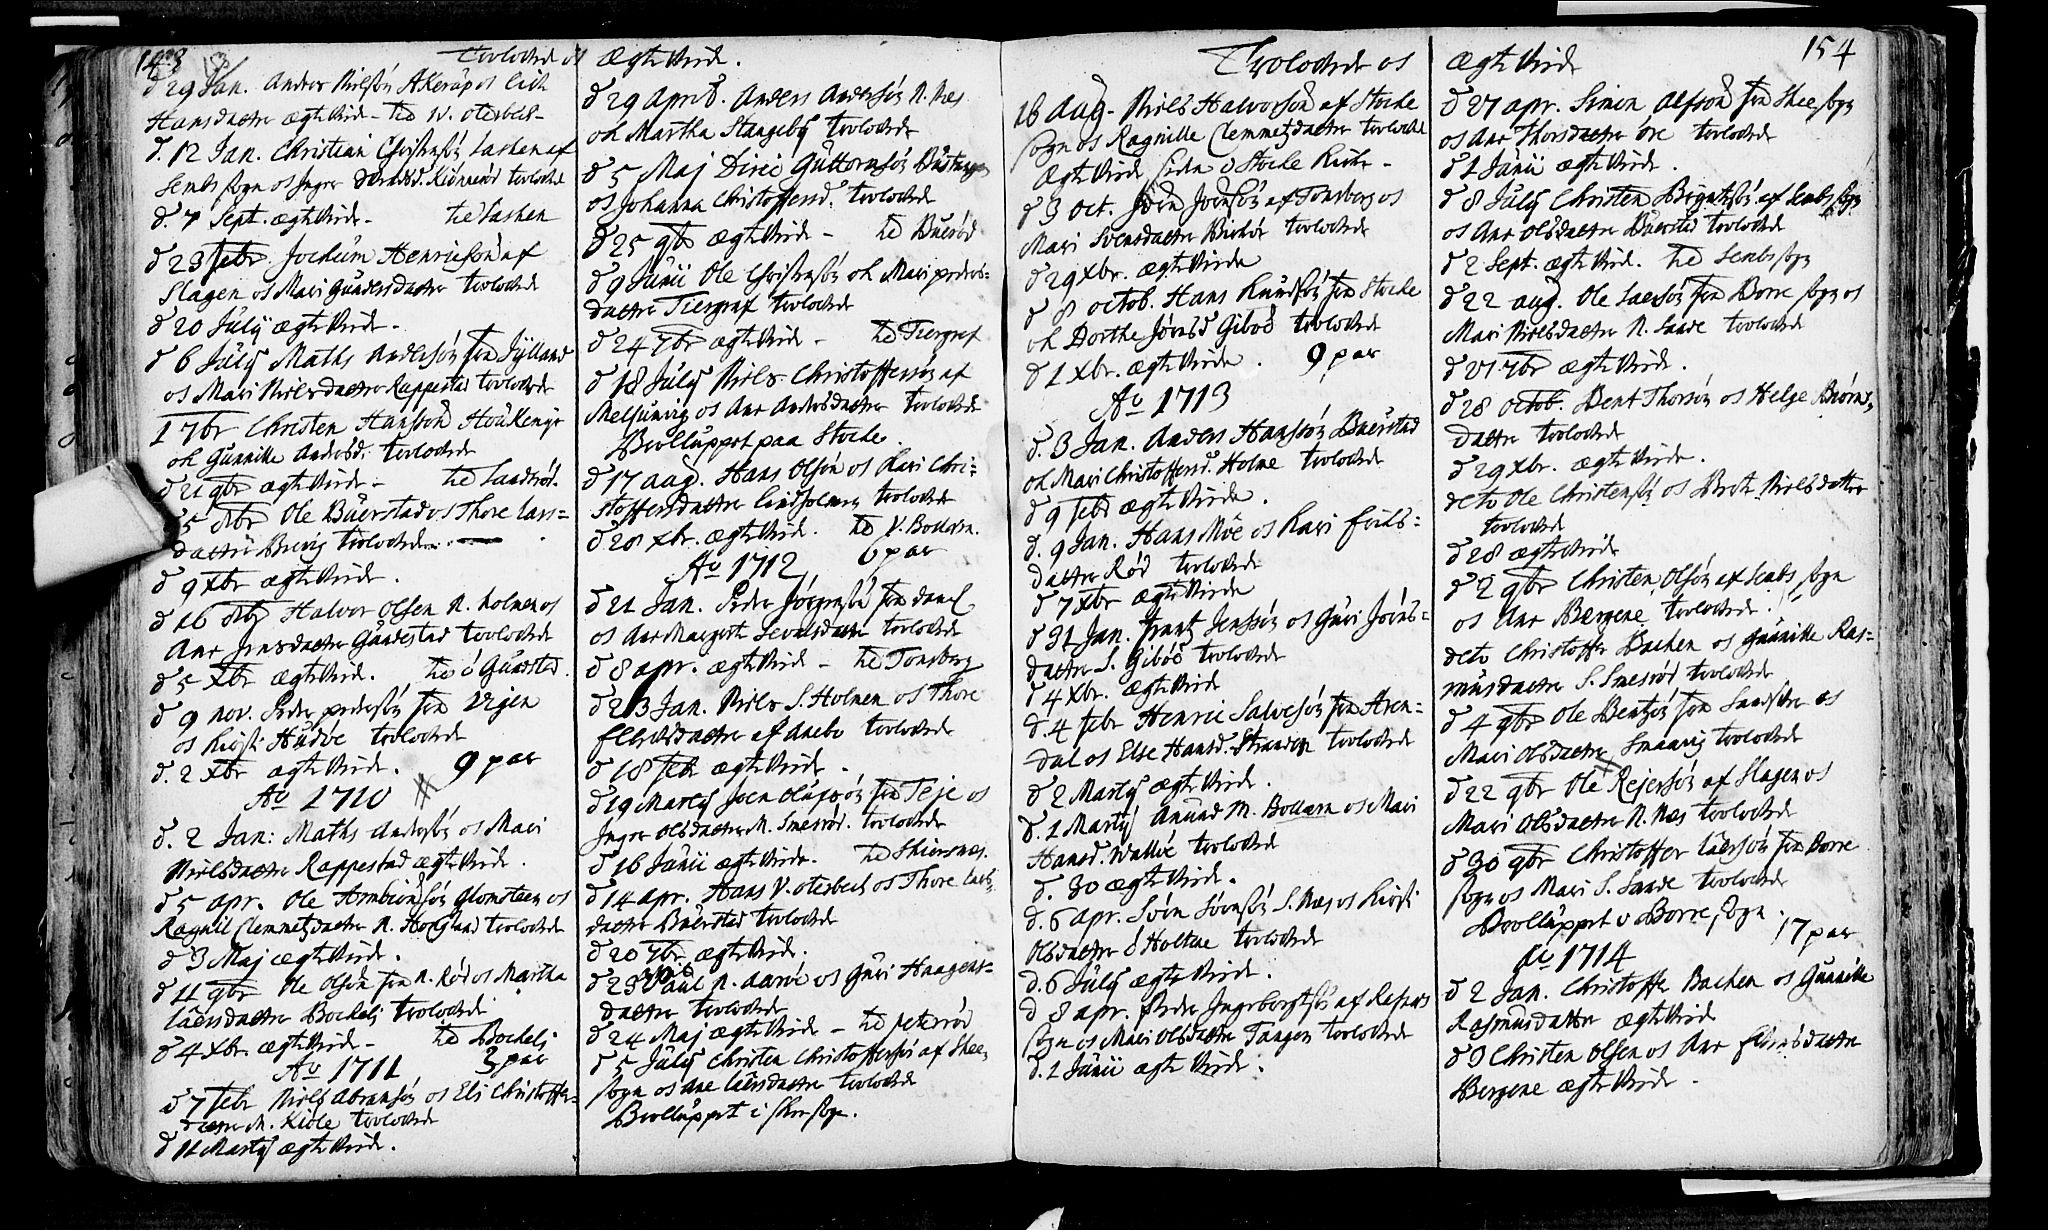 153
Trolovede os ÆgteViede.
d 29 Jan. Anders Nielsøn AKerup os Lisb
Hansdaatter ægteVied - til W. oterbech -
d. 12 Jan. Christian Christensøn Lasken af
Sembs sogn os Inger Kiønnerød trolovede
d. 7 Sept. ægteViede - til Lasken
d 23 febr. Jochum Henrichsøn af
Slagen os Mari Gundersdaatter trolovede
d 20 July ægteViede -
d 6 July Maths Andersøn fra Jylland
os Mari Nielsdaatter Rappestad trolovede
1 7br Christen Hansøn
oh Gunnille Andersd. trolovede
d 21 9br ægteViede - til Sandrød.
d 5 8br Ole Buerstad os Thore Lars=
daatter Brevig trolovede
d 9 Xbr ægteViede.
d 16 8br Halvor Olsen N. holmen os
Anr Jensdaatter Gunestad trolovede
d 5 Xbr ægteViede. til Gunestad.
d 9 nov. Peder pedersøn fra
os Kirsti Hudøe trolovede
d. 2 Xbr ægteViede. 9 par
Ao 1710 #
d. 2 Jan: Maths Andersøn os Mari
Nielsdaatter Rappestad ægteViede.
d 5 apr. Ole Ambiørnsøn os
Ragnil Clemmetzdaatter N. Hogsland trolovede
d 3 Maj ægteViede.
d 11 9br Ole Olsøn fra N. Rød os Martha
Laersdaatter Bockeli trolovede
d 4 Xbr. ægteViede - til Bockeli
Ao 1711 3 par
d 7 febr Niels Abramsøn os Eli Christoffer=
datter N. Kiøle trolovede
d 11 Martij ægteViede.
d 29 April. Anders Andersøn N. Nes
oh Martha Stangebÿ trolovede
d 5 Maj Diric Guttormsøn
os Johanna Christoffersd. trolovede
d 25 9br ægteViede - til Buerød
d 9 Junii Ole Christensøn oh Mari peders=
datter Tiergraf trolovede
d 24 7br ægteViede - til Tiergraf
d 18 July Niels Christoffersøn af
Melsumvig os Anr Andersdaatter trolovede
Brolluppet paa Stocke.
d 17 aug. Hans Olsøn os Kari Chri=
stoffersdaatter Lindholmen trolovede
d 28 Xbr. ægteViede. til V. Bollærn.
Ao 1712 6 par
d 21 Jan. Peder Jørgensøn fra
os Anr Margrete trolovede
d 8 apr. ægteViede - til Tonsberg
d 23 Jan. Niels S. Holmen os Thore
Ellevsdaatter af trolovede
d 18 febr ægteViede -
d 19 Martij Joen Olufsøn fra Teje os
Inger Olsdaatter N. Smerød. trolovede
d 16 Junii ægteViede - til Skiersnes.
d 14 apr. Hans V. oterbech os Thore Lars
daatter Buerstad trolovede
d 20 7br ægteViede.
d 23 Paul N. Aarøe os Guri Haagens=
daatter trolovede
d 24 Maj ægteViede - til peterrød
d 5 July Christen Christoffersøn af Skee
sogn os Ane Laersdaatter trolovede
Brolluppet i skee sogn.
Trolovede os ÆgteViede
154
16 Aug - Niels Halvorsøn af Stocke
sogn os Ragnille Clemmetzdaatter trolovede
ÆgteViede siden i Stocke Kirke -
d 3 Oct. Joen Joensøn af Tonsberg os
Mari Svensdaatter trolovede
d 29 Xbr. ægteViede
d 8 octob. Hans Knudsøn fra Stocke
oh Dorthe Jørnsd Gibøe trolovede
d 1 Xbr. ægteViede. 9 par
Ao 1713
d. 3 Jan. Anders Hanssøn Buerstad
oh Mari Christoffersd. Holme trolovede
d 9 febr ægteViede.
d. 9 Jan. Hans Møe os Kari
daatter Rød trolovede
d 7 Xbr ægteViede
d 31 Jan. frantz Jenssøn os Guri Jørns=
daatter S. Gibøe trolovede
d 4 Xbr. ægteViede
d. 4 febr Henric Salvesøn fra Aren=
dal os Else Hansd. Stranden trolovede
d 2 Martij ægteViede.
d. 1 Martij Amund M. Bollærn os Mari
Hansd. Walløe trolovede
d. 30 ægteViede.
d. 6 apr. Sørn Sørnsøn S. Næs os Kirsti
Olsdaatter Holtne trolovede
d. 6 July ægteViede.
d 8 apr. Peder Ingeborgsøn af
sogn os Mari Olsdaatter Tangen trolovede
d. 1 Junii ægteViede.
d 27 apr. Simon Olfsøn fra Skee sogn
os Anr Thorsdaatter øre trolovede
d 1 Junii ægteViede.
d 8 July Christen Bryntsøn af Sembs sogn
os Anr Olsdaatter Buerstad trolovede
d 2 Sept. ægteViede. til Sembs sogn
d 22 aug. Ole Laersøn fra Borre sogn os
Mari Nielsdaatter N. Sande trolovede
d 21 7br ægteViede.
d 28 Octob. Bent Thorsøn os Helge Biørns=
daatter trolovede
d 29 Xbr. ægteViede.
deto Ole Christensøn os Berte Nielsdatter
trolovede
d 28 ægteViede
d 2 9br Christen Olsøn af Sembs sogn
os Anr Bergene trolovede.
deto Christoffer Bachen os Gunnille Ras=
musdaatter S. Smerød trolovede
d 4 9br Ole Bentzøn fra Sandsøe os
Mari Olsdaatter Smaavig trolovede
d 22 9br Ole Rejersøn af Slagen os
Mari Olsdaatter N. Næs trolovede
d 30 9br Christoffer Laersøn fra Borre
sogn os Mari S. Sande trolovede
Brolluppet i Borre sogn.
17 par
Ao 1714
d 2 Jan. Christoffer Bachen os Gunnille
Rasmusdatter ægteViede
d 9 Christen Olsen os Anr
Bergene ægteViede -